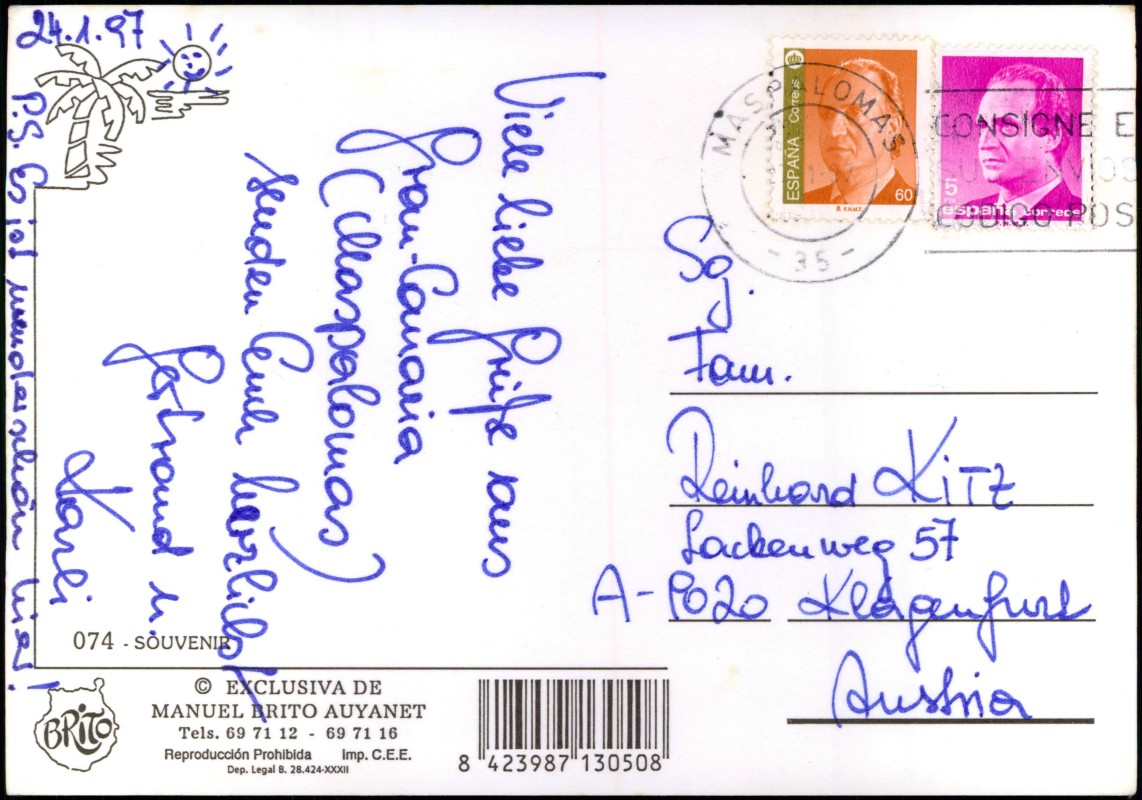 24.1.97
Viele liebe Grüße aus
Gran-Canaria
(Maspalomas)
senden Euch herzlichst
Gertraud u.
Karli
P.S. Es ist wunderschön hier!
MASPALOMAS
- 35 -
ESPAÑA Correos
60
5
españa correos
CONSIGNE E
ENVIOS
CODIGO POS
Fam.
Reinhard KiTZ
Lackenweg 57
A-9020 Klagenfurt
Austria
074 - SOUVENIR
BRITO
© EXCLUSIVA DE
MANUEL BRITO AUYANET
Tels. 69 71 12 - 69 71 16
Reproducción Prohibida Imp. C.E.E.
Dep. Legal B. 28.424-XXXII
8 423987 130508